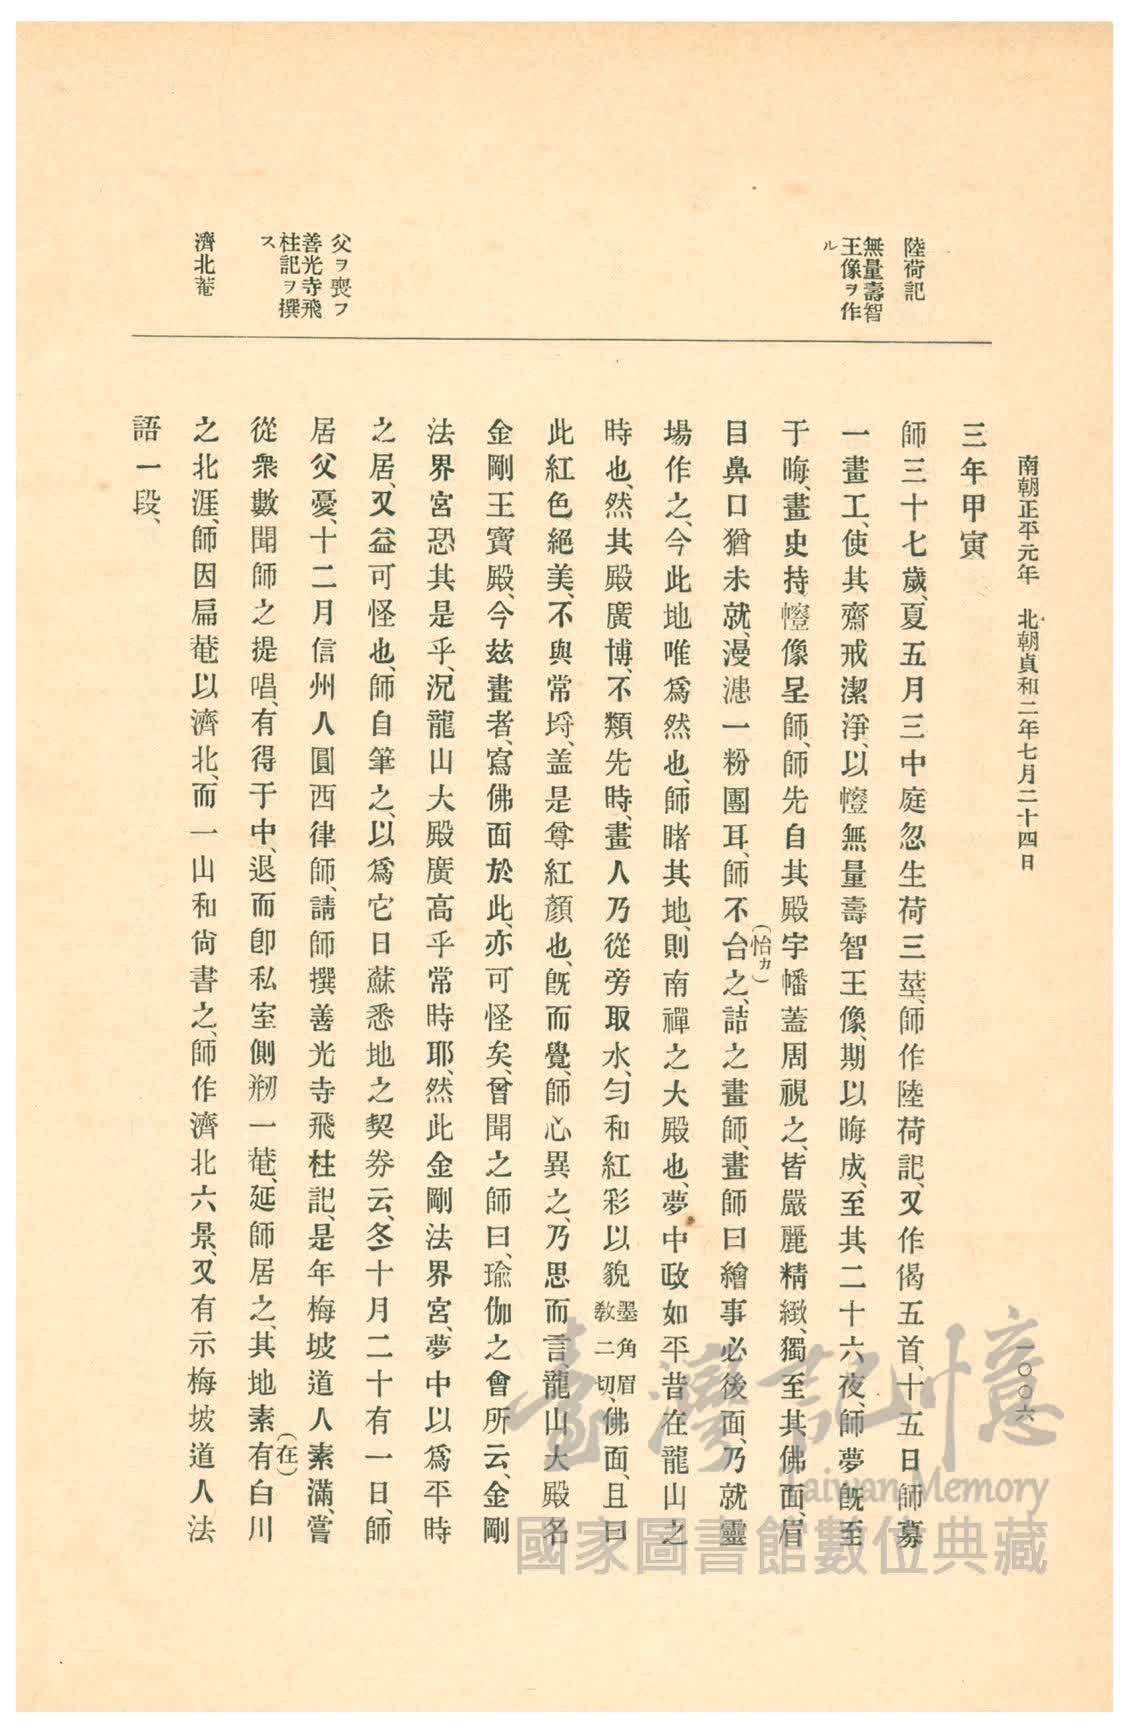 南朝正平元年　北朝貞和二年七月二十四日
一〇〇六
陸荷記
無量壽智
王像ヲ作
ル
父ヲ喪フ
善光寺飛
柱記ヲ撰
ス
濟北菴
三年甲寅
師三十七歲、夏五月三中庭忽生荷三莖、師作陸荷記、又作偈五首、十五日師募
一畫工、使其齋戒潔淨、以幰無量壽智王像、期以晦成、至其二十六夜、師夢既至
于晦、畫史持幰像呈師、師先自其殿宇幡蓋周視之、皆嚴麗精緻、獨至其佛面、眉
目鼻口猶未就、漫漶一粉團耳、師不台(怡カ)之、詰之畫師、畫師曰繪事必後面、乃就靈
場作之、今此地唯爲然也、師睹其地、則南禪之大殿也、夢中政如平昔在龍山之
時也、然其殿廣博、不類先時、畫人乃從旁取水、勻和紅彩以貌墨角眉敎二切、佛面、且曰
此紅色絕美、不與常埒、盖是尊紅顏也、既而覺、師心異之、乃思而言、龍山大殿名
金剛王寶殿、今玆畫者、寫佛面於此、亦可怪矣、曾聞之師曰、瑜伽之會所云、金剛
法界宮恐其是乎、況龍山大殿廣高乎常時耶、然此金剛法界宮、夢中以爲平時
之居、又益可怪也、師自筆之、以爲它日蘇悉地之契券云、冬十月二十有一日、師
居父憂、十二月信州人圓西律師、請師撰善光寺飛柱記、是年梅坡道人素滿、嘗
從衆數聞師之提唱、有得于中、退而卽私室側剏一菴、延師居之、其地素有(在)白川
之北涯、師因扁菴以濟北、而一山和尙書之、師作濟北六景、又有示梅坡道人法
語一段、
臺灣記憶
Taiwan Memory
國家圖書館數位典藏